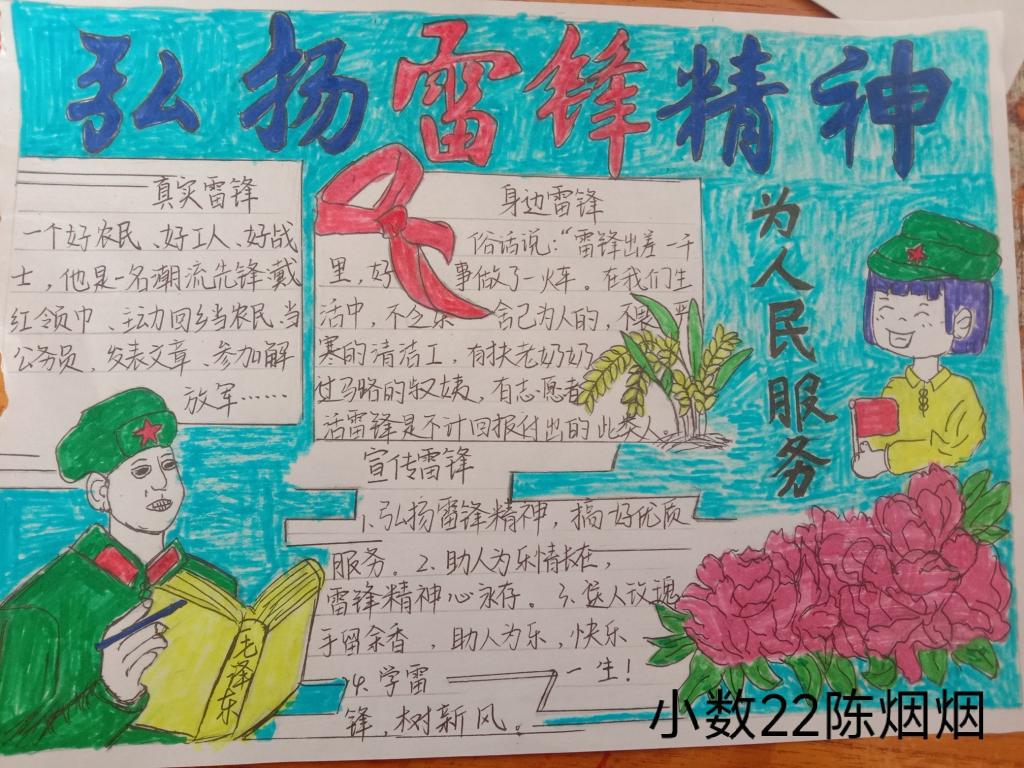 弘扬雷锋精神
真实雷锋
一个好农民、好工人、好战
士，他是一名潮流先锋戴
红领巾、主动回乡当农民、当
公务员，发表文章、参加解
放军……
身边雷锋
俗话说：“雷锋出差一千
里，好事做了一火车。在我们生
活中，不乏 舍己为人的，不畏严
寒的清洁工，有扶老奶奶
过马路的叔姨，有志愿者
活雷锋是不计回报付出的此类人。
宣传雷锋
1.弘扬雷锋精神，搞好优质
服务。2.助人为乐情长在，
雷锋精神心永存。3.送人玫瑰
手留余香，助人为乐，快乐
一生！
4.学雷
锋，树新风。
为人民服务
毛泽东
小数22陈烟烟